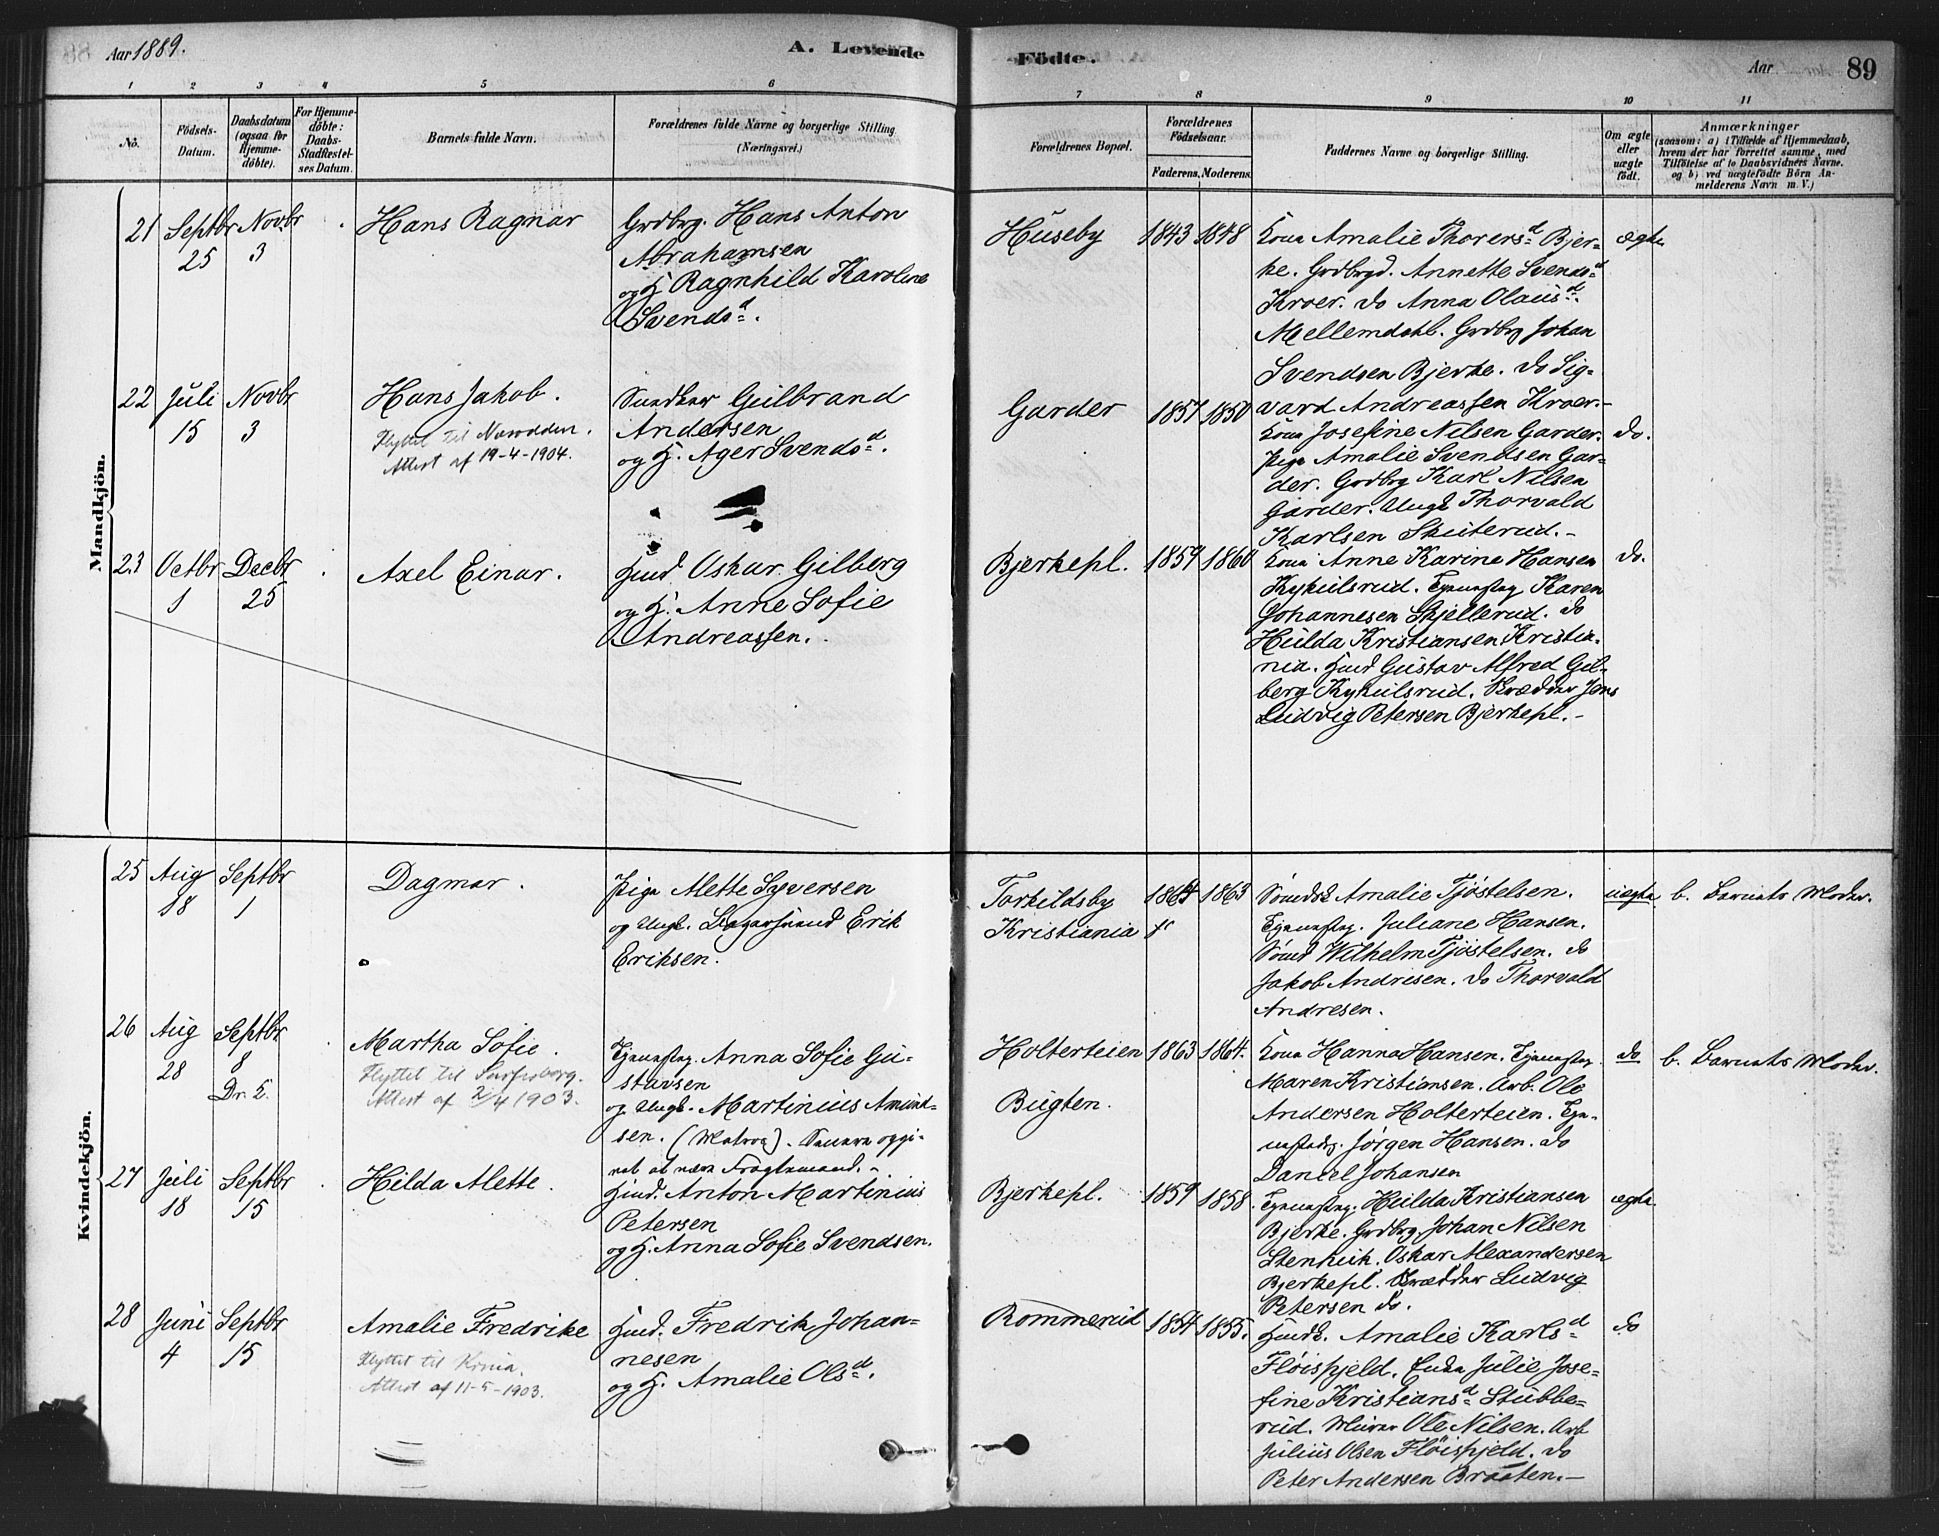 Aar 1889.
A. Levende
Födte.
Aar
89
1 2 3 4 5 6
7 8 9 10 11
No.
Födsels-
Datum.
Daabsdatum
(ogsaa for
Hjemme-
döbte).
For Hjemme-
döbte:
Daabs-
Stadfæstel-
ses Datum.
Barnets fulde Navn.
Forældrenes fulde Navne og borgerlige Stilling
(Næringsvei.)
Forældrenes Bopæl.
Forældrenes
Födselsaar.
Faderens. Moderens.
Faddernes Navne og borgerlige Stilling.
Om ægte
eller
uægte
födt.
Anmærkninger
(saasom: a) i Tilfælde af Hjemmedaab,
hvem der har forrettet samme, med
Tilföielse af to Daabsvidners Navne.
og b) ved uægtefödte Börn An-
melderens Navn m. V.)
Mandkjön.
21
Septbr
25
Novbr
3
Hans Ragnar
Grdbrg. Hans Anton
Abrahamsen
og H. Ragnhild Karoline
Svendsd.
Huseby
1843
1848
Kona Amalie Thorersd Bjer-
ke. Grdbrgd. Annette Svendsd
Kroer. do Anna Olausd.
Mellemdahl. Grdbrg Johan
Svendsen Bjerke. do Sig-
vard Andreassen Kroer.-
ægte
22
Juli
15
Novbr
3
Hans Jakob.
Flyttet til Notodden.
Attest af 19-4-1904.
Snedker Gulbrand
Andersen
og H. Ager Svendsd.
Garder
1857
1850
Kona Josefine Nilsen Garder.
Pige Amalie Svendsen Gar-
der. Grdbrg Karl Nilsen
Garder. Ungk Thorvald
Karlsen Skuterud.-
do.
23
Octbr
1
Decbr
25
Axel Einar.
Hmd. Oskar Gilberg
og H. Anne Sofie
Andreassen.
Bjerkepl.
1859
1860
Kona Anne Karine Hansen
Kykulsrud. Tjenestpg Karen
Johannesen Skjellerud. do
Hulda Kristiansen Kristia-
nia. Hmd Gustav Alfred Gil-
berg Kykulsrud. Skrædder Jens
Ludvig Petersen Bjerkepl.-
do.
Kvindekjön.
25
Aug
18
Septbr
1
Dagmar.
Pige Alette Syversen
og Ungk. Erik
Eriksen.
Torkildsby
Kristiania
1864
1863
Smedk Amalie Tjöstelsen.
Tjenestpg. Juliane Hansen.
Smed Wilhelm Tjöstelsen. do
Jakob Andresen. do Thorvald
Andresen.
uægte
b. Barnets Moder.
26
Aug
28
Septbr
8
Martha Sofie.
Flyttet til Sarpsborg.
Attest af 2/4 1903.
Tjenestpg. Anna Sofie Gu-
stavsen
og Ungk. Martinius Amund-
sen. (Matros). Senere opgi-
vet at være Fragtemand.-
Holterteien
Bugten.
1863
1864.
Kona Hanna Hansen. Tjenestpg.
Maren Kristiansen. Arb. Ole
Andersen Holterteien. Tje-
Jörgen Hansen. do
Daniel Johansen
do
b. Barnets Moder.
27
Juli
18
Septbr
15
Hilda Alette.
Hmd. Anton Martinius
Petersen
og H. Anna Sofie Svendsen.
Bjerkepl.
1859
1858.
Tjenestpg. Hulda Kristiansen
Bjerke. Grdbrg Johan Nilsen
Stenhuk. Oskar Alexandersen
Bjerkepl. Skrædder Ludvig
Petersen do.
ægte
28
Juni
4
Septbr
15
Amalie Fredrike
Flyttet til Krnia.
Attest af 11-5-1903.
Hmd. Fredrik Johan-
nesen
og H. Amalie Olsd.
Rommerud
1854
1855.
Hmdk. Amalie Karlsd
Flöispjeld. Enke Julie Jose-
fine Kristiansd Stubbe-
rud. Murer Ole Nilsen. Arb
Julius Olsen Flöispjeld. do
Peter Andersen Braaten.-
do